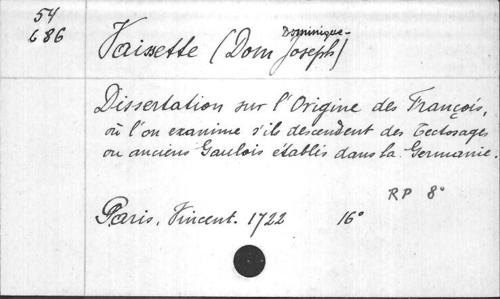 54
686
Dominique-
Vaissette (Dom Joseph)
Dissertation sur l'Origine des François,
où l'on examine s'ils descendent des Tectosages
ou anciens Gaulois établis dans la Germanie.
RP 8°
Paris, Vincent. 1722 16°